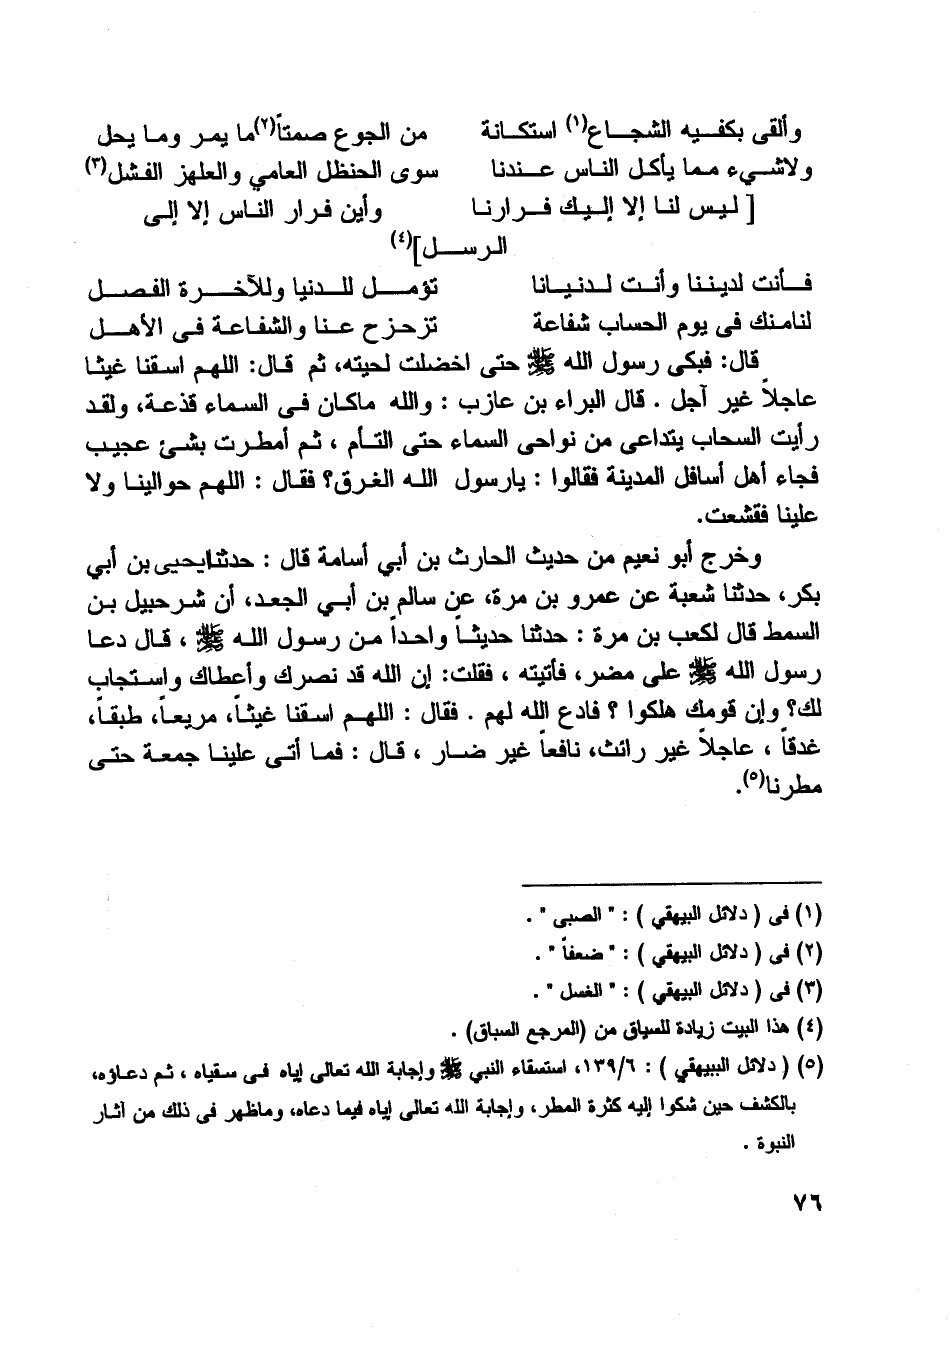 وألقى بكفـــيه الشجـــاع(١) استكـــانة من الجوع صمتاً(٢)ما يمـر ومـا يحل
ولاشـــيء ممـا يأكـل النـاس عـــندنا سوى الحنظل العامي والعلهز الفشل(٣)
[ لـيس لنـا إلا إلـيك فـــرارنـا وأين فـرار النـاس إلا إلـى
الـرســـل](٤)
فـــأنت لديـنـنا وأنـــت لـدنـيـانـا تؤمـــــل للـــدنيا وللآخـــــرة الفصـــل
لنامـنك فى يوم الحساب شفاعة تزحـزح عـنا والشفـاعة فـى الأهـــل
قال: فبكى رسول الله ﷺ حتى اخضلت لحيته، ثم قـال: اللهم اسقنا غيثـا
عاجلاً غير آجل . قال البراء بن عازب : والله ماكـان فـى السمـاء قذعـة، ولقـد
رأيت السحاب يتداعى من نواحى السماء حتى التـأم ، ثـم أمطـرت بشـئ عجيـب
فجاء أهل أسافل المدينة فقالوا : يارسول اللـه الغـرق؟ فقـال : اللهـم حوالينـا ولا
علينا فقشعت.
وخرج أبو نعيم من حديث الحارث بن أبي أسامة قال : حدثنايحيى بن أبي
بكر، حدثنا شعبة عن عمرو بن مرة، عن سالم بن أبـي الجعـد، أن شـرحبيل بـن
السمط قال لكعب بن مرة : حدثنا حديثـاً واحـداً مـن رسـول اللـه ﷺ ، قـال دعـا
رسول الله ﷺ على مضر، فأتيته ، فقلت: إن الله قد نصرك وأعطاك واسـتجاب
لك؟ وإن قومك هلكوا ؟ فادع الله لهم . فقال : اللهـم اسقنا غيثـاً، مريعـاً، طبقـاً،
غدقاً ، عاجلاً غير رائث، نافعاً غير ضـار ، قـال : فمـا أتـى علينـا جمعـة حتـى
مطرنا(٥).
(١) فى ( دلائل البيهقي ) : " الصبى " .
(٢) فى ( دلائل البيهقي ) : " ضعفاً " .
(٣) فى ( دلائل البيهقي ) : " الغسل " .
(٤) هذا البيت زيادة للسياق من (المرجع السباق) .
(٥) ( دلائل البيبهقي ) : ١٣٩/٦، استسقاء النبي ﷺ وإجابة الله تعالى إياه فـى سقياه ، ثم دعاؤه،
بالكشف حين شكوا إليه كثرة المطر، وإجابة الله تعالى إياه فيما دعاه، وماظهر فى ذلك من آثـار
النبوة .
٧٦